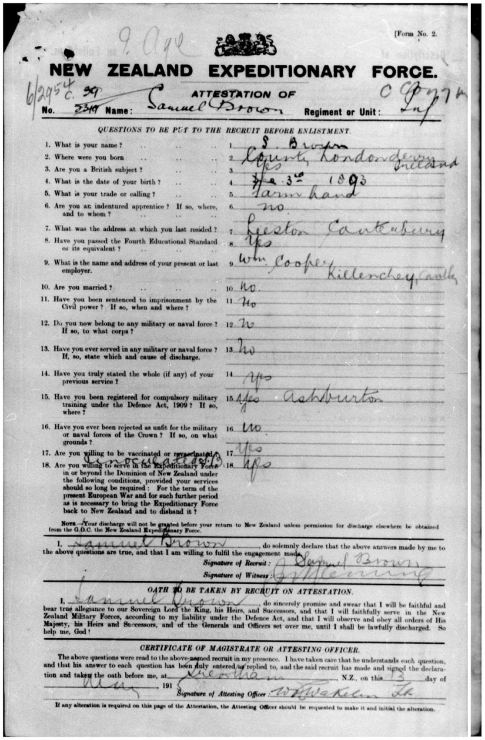 [Form No. 2.
NEW ZEALAND EXPEDITIONARY FORCE.
ATTESTATION OF
No. Name: Samuel Brown Regiment or Unit: Inf
QUESTIONS TO BE PUT TO THE RECRUIT BEFORE ENLISTMENT.
1. What is your name? .. .. .. 1. S. Brown
2. Where were you born .. .. .. 2. County Londonderry Ireland
3. Are you a British subject? .. .. .. 3. Yes
4. What is the date of your birth? .. .. 4. 1893
5. What is your trade or calling? .. .. 5. Farm hand
6. Are you an indentured apprentice? If so, where, 6. no
and to whom?
7. What was the address at which you last resided? 7. Leeston Canterbury
8. Have you passed the Fourth Educational Standard 8. Yes
or its equivalent?
9. What is the name and address of your present or last 9. Wm Cooper
employer. Killenchey,
10. Are you married? .. .. .. .. 10. no
11. Have you been sentenced to imprisonment by the 11. no
Civil power? If so, when and where?
12. Do you now belong to any military or naval force? 12. no
If so, to what corps?
13. Have you ever served in any military or naval force? 13. no
If so, state which and cause of discharge.
14. Have you truly stated the whole (if any) of your 14. yes
previous service?
15. Have you been registered for compulsory military 15. yes Ashburton
training under the Defence Act, 1909? If so,
where?
16. Have you ever been rejected as unfit for the military 16. no
or naval forces of the Crown? If so, on what
grounds?
17. Are you willing to be vaccinated or revaccinated 17. yes
inoculated
18. Are you willing to serve in the Expeditionary Force 18. yes
in or beyond the Dominion of New Zealand under
the following conditions, provided your services
should so long be required: For the term of the
present European War and for such further period
as is necessary to bring the Expeditionary Force
back to New Zealand and to disband it?
NOTE—Your discharge will not be granted before your return to New Zealand unless permission for discharge elsewhere be obtained
from the G.O.C. the New Zealand Expeditionary Force.
I, Samuel Brown, do solemnly declare that the above answers made by me to
the above questions are true, and that I am willing to fulfil the engagement made.
Signature of Recruit: Samuel Brown
Signature of Witness:
OATH TO BE TAKEN BY RECRUIT ON ATTESTATION.
I, Samuel Brown, do sincerely promise and swear that I will be faithful and
bear true allegiance to our Sovereign Lord the King, his Heirs, and Successors, and that I will faithfully serve in the New
Zealand Military Forces, according to my liability under the Defence Act, and that I will observe and obey all orders of His
Majesty, his Heirs and Successors, and of the Generals and Officers set over me, until I shall be lawfully discharged. So
help me, God!
CERTIFICATE OF MAGISTRATE OR ATTESTING OFFICER.
The above questions were read to the above-named recruit in my presence. I have taken care he understands each question,
and that his answer to each question has been duly entered as replied to, and the said recruit has made and signed the declara-
tion and taken the oath before me, at Trentham N.Z., on this 13 day of
191
Signature of Attesting Officer:
If any alteration is required on this page of the Attestation, the Attesting Officer should be requested to make it and initial the alteration.